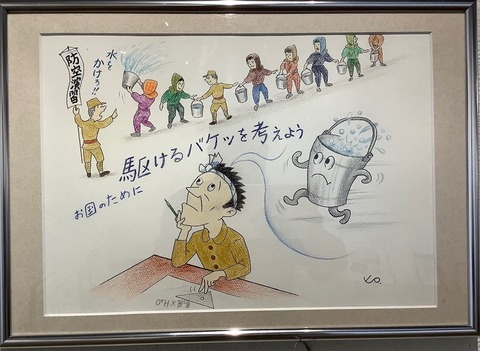 防空演習
水を
かけろ!!
駆けるバケツを考えよう
お国のために